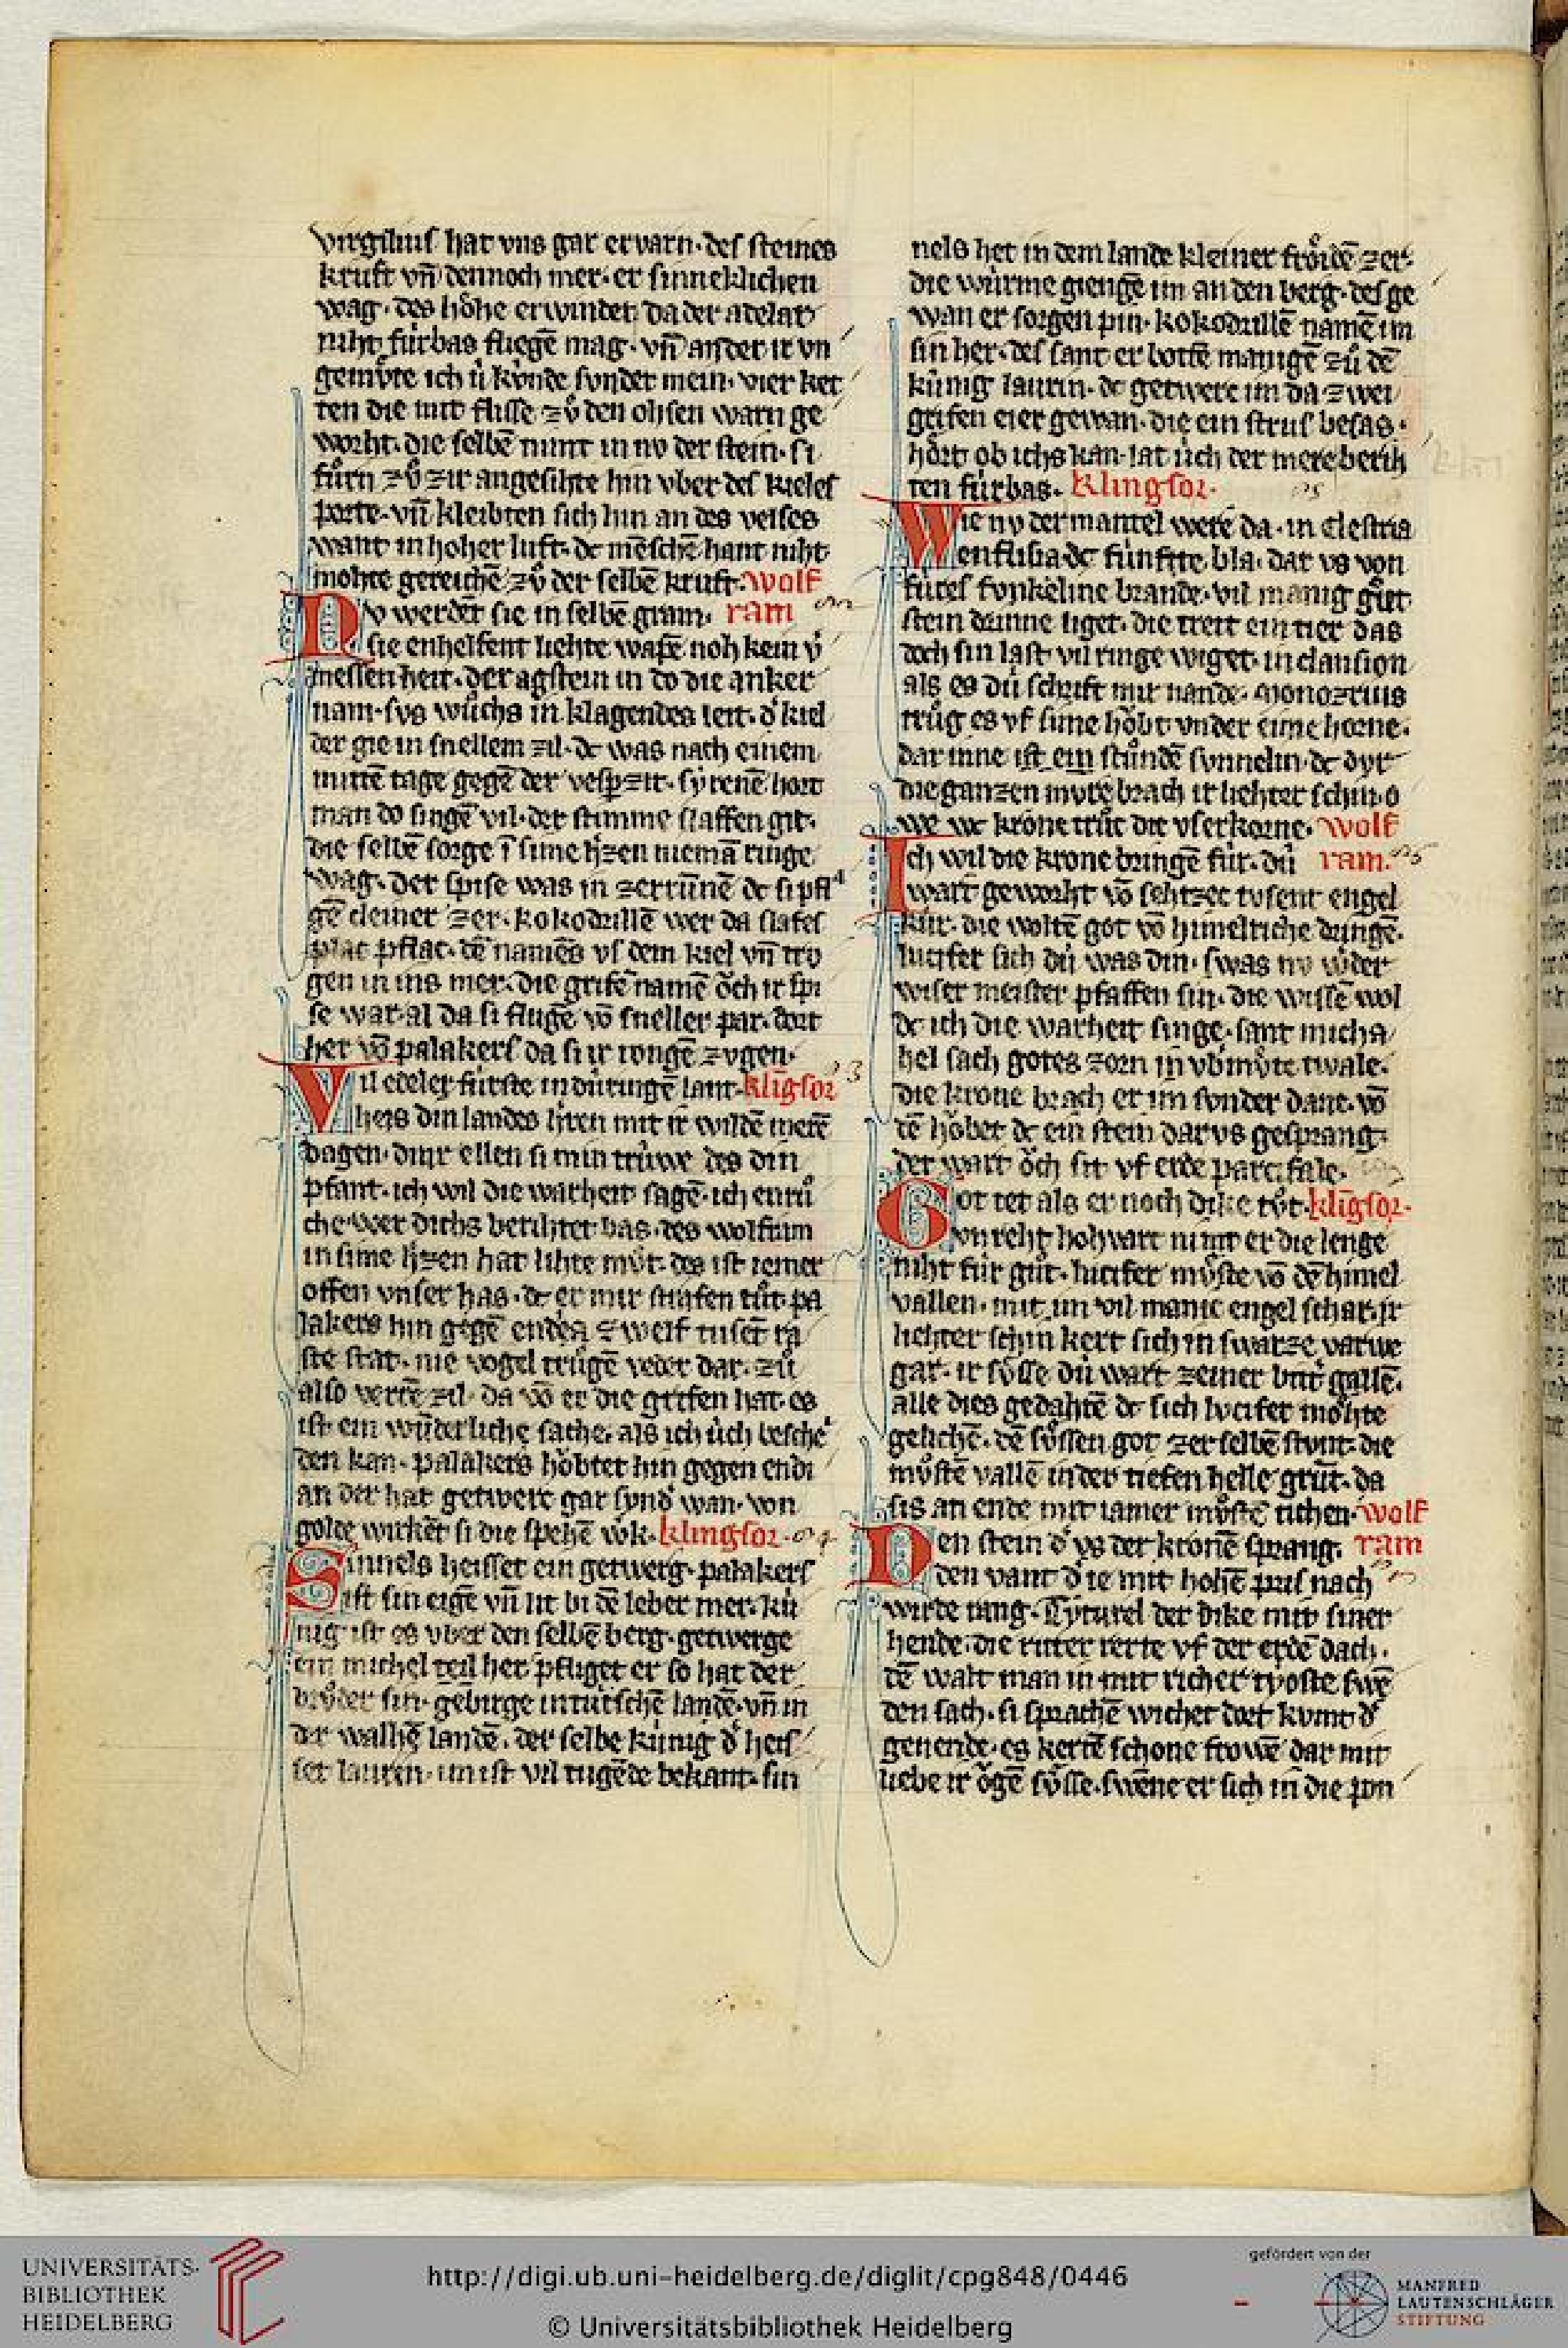 virgiliuſ hat vns gar ervarn· deſ ſteines
kruft vn̄ dennoch mer· er ſinneklichen
wag· des hoͤhe erwindet da der adelar
niht fúrbas fliegē mag· vn̄ ander ir vn
gemvͤte ich ú kv́nde ſunder mein· vier ket
ten die mit fliſſe zvͦ den ohſen warn ge
worht· die ſelbē nimt in nv der ſtein· ſi
fuͦrn zvͦ zir angeſihte hin vber deſ kieleſ
porte· vn̄ kleibten ſich hin an des velſes
want in hoher luft· dc mēſchē hant niht
mohte gereichē zvͦ der ſelbē kruft· wolf
Nv werdēt ſie in ſelbē gram· ram
ſie enhelfent liehte wafē noh kein v̓
meſſenheit· der agſtein in do die anker
nam· ſvs wuͦchs in klagendes leit· d̓ kiel
der gie in ſnellem zil· dc was nach einem
mittē tage gegē der veſpzit· ſyrenē hort
man do ſingē vil· der ſtimme ſlaffen git·
die ſelbē ſorge ī ſime h̓zen niemā ringe
wag· der ſpiſe was in zerrunnē dc ſi pfla
gē cleiner zer· kokodrillē wer da ſlafeſ
plac pflac· dē namēs vſ dem kiel vn̄ trv
gen in ins mer· die grifē namē oͮch ir ſpi
ſe war· al da ſi flugē vō ſneller par· dort
her vō palakerſ da ſi ir iongē zvgen·
Vil edeler fúrſte in dúringē lant· kligſor
heis din landes h̓ren mit ir wildē merē
dagen· dinr ellen ſi min trúwe des din
pfant· ich wil die warheit ſagē· ich enruͦ
che wer dichs berihtet bas· des wolfram
in ſime h̓zen hat lihte mvͦt· des iſt iemer
offen vnſer has· dc er mir ſtrafen tuͦt· pa
lakers hin gegē endea zwelf tuſēt ra
ſte ſtat· nie vogel truͦgē veder dar· zuͦ
alſo verrē zil· da vō er die grifen hat· es
iſt ein wūderliche ſache· als ich úch beſche
den kan· palakers hoͤbtet hin gegen endi
an der hat getwerc gar ſvnd̓ wan· von
golde wirkēt ſi die ſpehē w̓k· klingſor·
Sinnels heiſſet ein getwerg· palakerſ
iſt ſin eigē vn̄ lit bi dē leber mer· kú
nig iſt es vber den ſelbē berg· getwerge
ein michel teil her pfliget er ſo hat der
brvͦder ſin· gebirge in tútſchē landē· vn̄ in
der walhē landē· der ſelbe kúnig d̓ heiſ
ſet laurin· im iſt vil tugēde bekant· ſin
nels het in dem lande kleiner froͤidē zer·
die wúrme giengē im an den berg· deſ ge
wan er ſorgen pin· kokodrillē namē im
ſin her· deſ ſant er bottē manigē zuͦ dē
kúnig laurin· dc getwerc im da zwei
grifen eier gewan· die ein ſtruſ beſas·
hoͤrt ob ichs kan· lat úch der mere berih
ten fúrbas· klingſor·
Wie nv der mantel were da· in eleſtria
wenfluſia dc fúnfte· bla· dar vs von
fúreſ fvnkeline brande· vil manig guͦt
ſtein drinne liget· die treit ein tier das
doch ſin laſt vil ringe wiget· in clanſion
als es dú ſchrift mir nande· Monozerus
truͦg es vf ſime hoͤbt vnder eime horne·
dar inne iſt ein ſtuͦndē ſvnnelin· dc dvr
die ganzen mvre brach ir liehter ſchin· o
we wc krone truͦc die vſerkorne· wolf
Ich wil die krone bringē fúr· dú ram·
wart geworht vō ſehtzec tvſent engel
kúr· die woltē got vō himelriche dringē·
lucifer ſich dú was din· ſwas nv wid̓er
wiſer meiſter pfaffen ſin· die wiſſē wol
dc ich die warheit ſinge· ſant micha
hel ſach gotes zorn in vbmvͦte twale·
die krone brach er im ſvnder danc· vō
dē hoͤbet dc ein ſtein dar vs geſprang·
der wart oͮch ſit vf erde parcifale·
Got tet als er noch dike tvͦt· kligſor·
vnreht hohvart nimt er die lenge
niht fúr guͦt· lucifer mvͦſte vō dē himel
vallen· mit im vil manic engel ſchar· ir
liehter ſchin kert ſich in ſwarze varwe
gar· ir ſvͤſſe dú wart zeiner bittr̓ gallē·
alle dies gedahtē dc ſich lvcifer moͤhte
gelichē· dē ſvͤſſen got zer ſelbē ſtvnt· die
mvͦſtē vallē in der tiefen helle grūt· da
ſis an ende mit iamer mvͦſtē richen· wolf
Den ſtein d̓ vs der kronē ſprang· ram
den vant d̓ ie mit hohē priſ nach
wirde rang· Tyturel der dike mit ſiner
hende· die ritter rerte vf der erdē dach·
dē walt man in mit richer tyoſte ſwē
den ſach· ſi ſprachē wichet dort kvmt d̓
genende· es kertē ſchone frowē dar mit
liebe ir oͮgē ſvͤſſe· ſwēne er ſich in die pon
UNIVERSITÄTS-
BIBLIOTHEK
HEIDELBERG
http://digi.ub.uni-heidelberg.de/diglit/cpg848/0446
© Universitätsbibliothek Heidelberg
gefördert von der
MANFRED
LAUTENSCHLÄGER
STIFTUNG